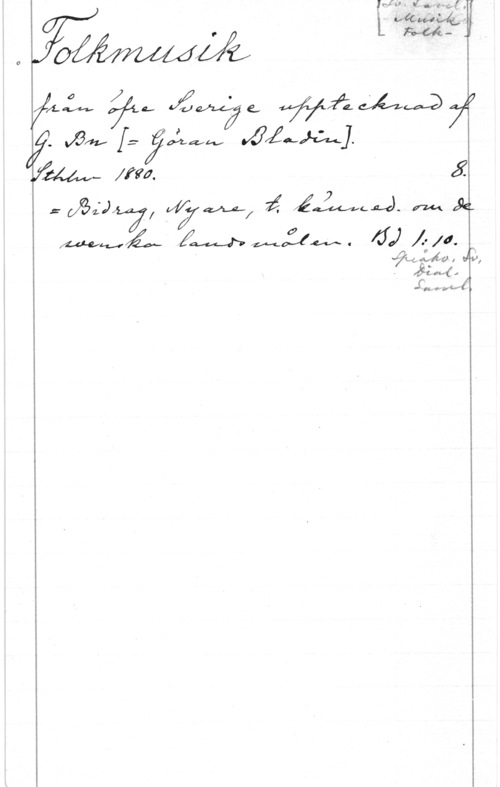 Sv. Saml.
Musik
Folk-
Folkmusik
från öfre Sverige upptecknad af
G. Bn [= Göran Bladin].
Sthlm 1880. 8.
= Bidrag, Nyare, t. känned. om de
svenska landsmålen. Bd 1:10.
Språkv. Sv.
Dial.
Saml.